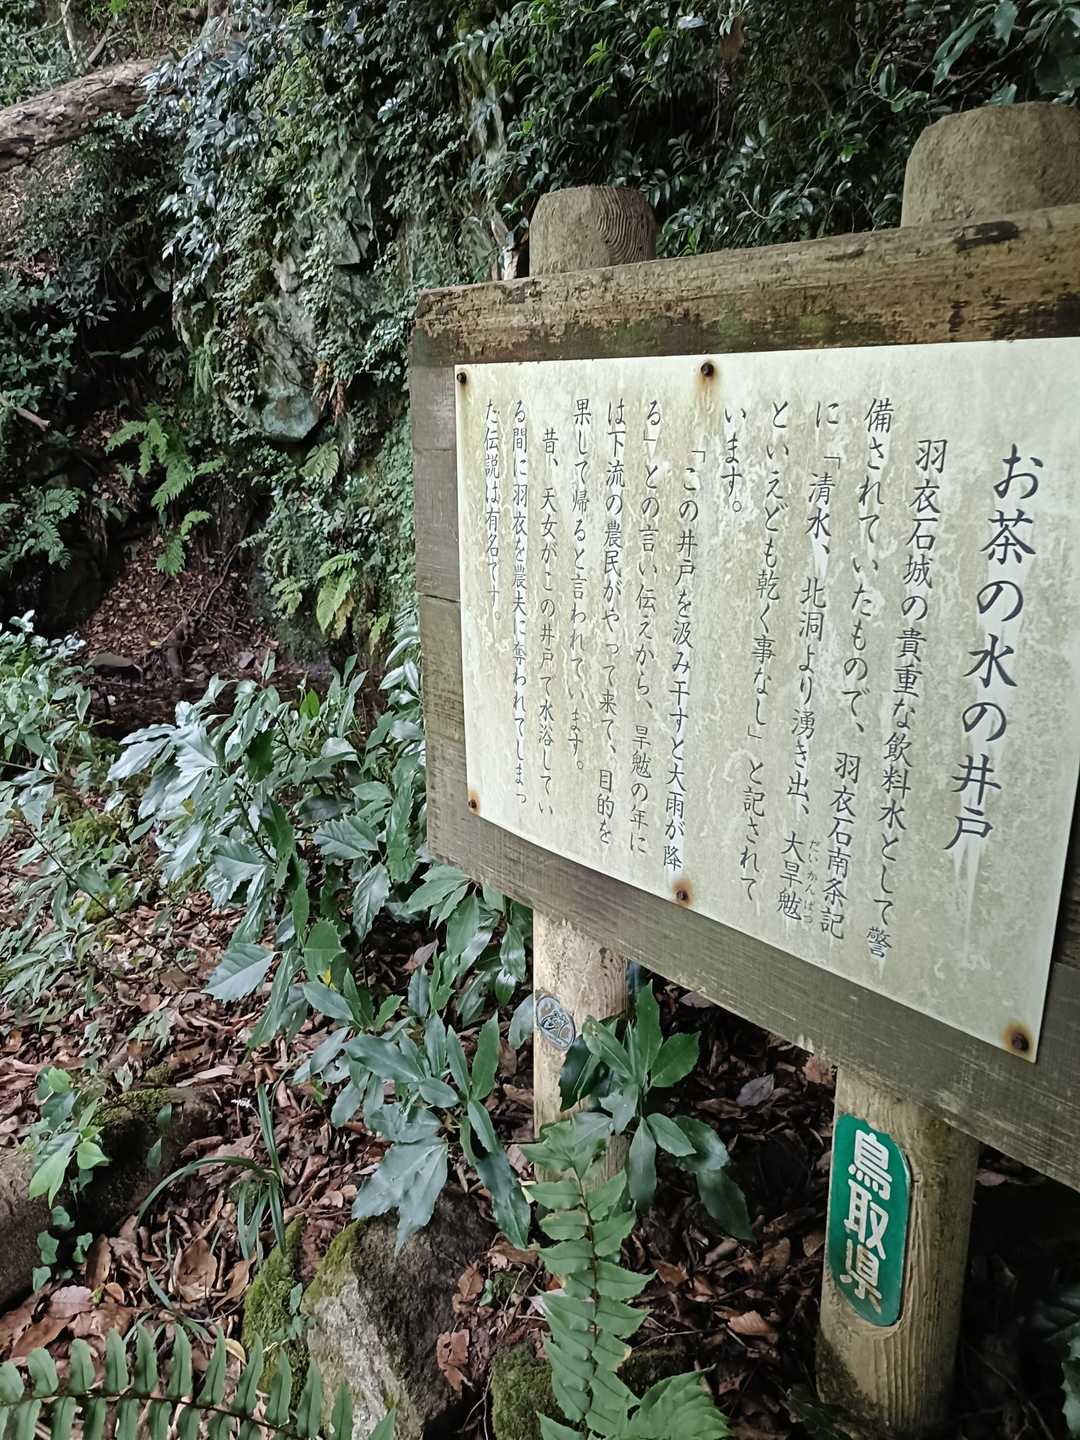 お茶の水の井戸
羽衣石城の貴重な飲料水として警
備されていたもので、羽衣石南条記
に「清水、北洞より湧き出、大旱魃
だいかんばつ
といえども乾く事なし」と記されて
います。
「この井戸を汲み干すと大雨が降
る」との言い伝えから、旱魃の年に
は下流の農民がやって来て、目的を
果して帰ると言われています。
昔、天女がこの井戸で水浴してい
る間に羽衣を農夫に奪われてしまっ
た伝説は有名です。
鳥取県